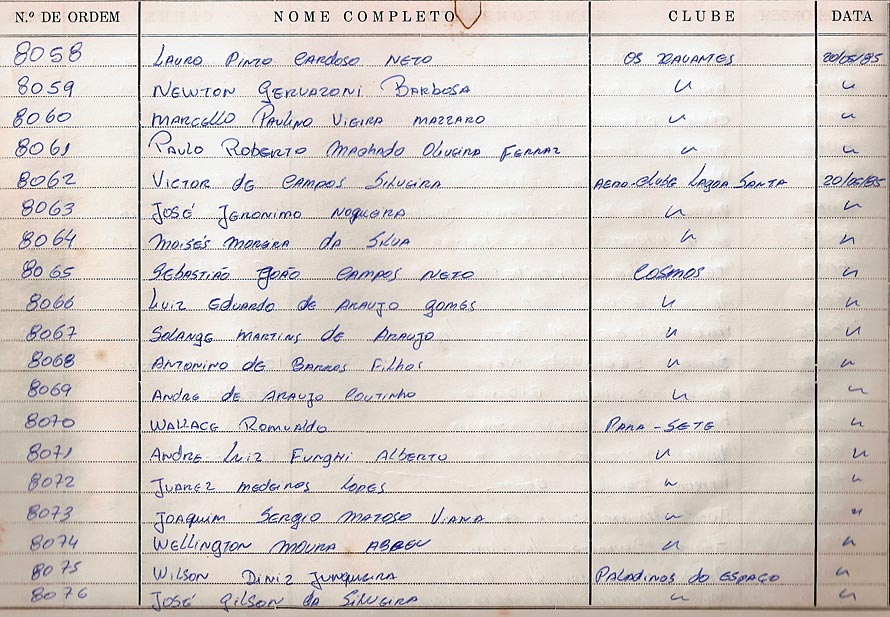 N.º DE ORDEM NOME COMPLETO CLUBE DATA
8058 Lauro Pinto Cardoso Neto Os Xavantes 20/05/85
8059 Newton Gervazoni Barbosa "
8060 Marcello Paulino Vieira Mazzaro " "
8061 Paulo Roberto Machado Oliveira Ferraz " "
8062 Victor de Campos Silveira Aero-Clube Lagoa Santa 20/05/85
8063 José Jeronimo Nogueira " "
8064 Moisés Moreira da Silva " "
8065 Sebastião João Campos Neto Cosmos "
8066 Luiz Eduardo de Araujo Gomes " "
8067 Solange Martins de Araujo " "
8068 Antonino de Barros Filhos " "
8069 Andre de Araujo Coutinho " "
8070 Wallace Romualdo Para-Sete "
8071 Andre Luiz Funghi Alberto " "
8072 Juarez Medeiros Lopes " "
8073 Joaquim Sergio Matoso Viana " "
8074 Wellington Moura Abreu " "
8075 Wilson Diniz Junqueira Paladinos do Espaço "
8076 José Gilson da Silveira " "